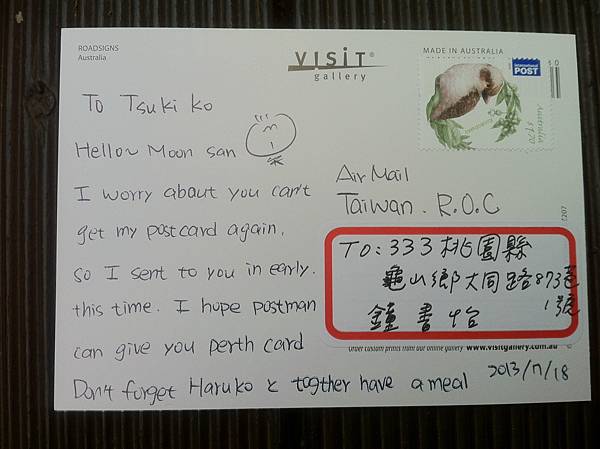 ROADSIGNS
Australia
VISIT
gallery
MADE IN AUSTRALIA
International
POST
50
Australia
$1.70
To Tsuki ko
Hello~ Moon san
I worry about you can't
get my postcard again.
so I sent to you in early.
this time. I hope postman
can give you perth card
Don't forget Haruko と togther have a meal
2013/11/18
Air Mail
Taiwan. R.O.C
TO: 333 桃園縣
龜山鄉大同路873巷
1號
鐘書怡
Order custom prints from our online gallery www.visitgallery.com.au